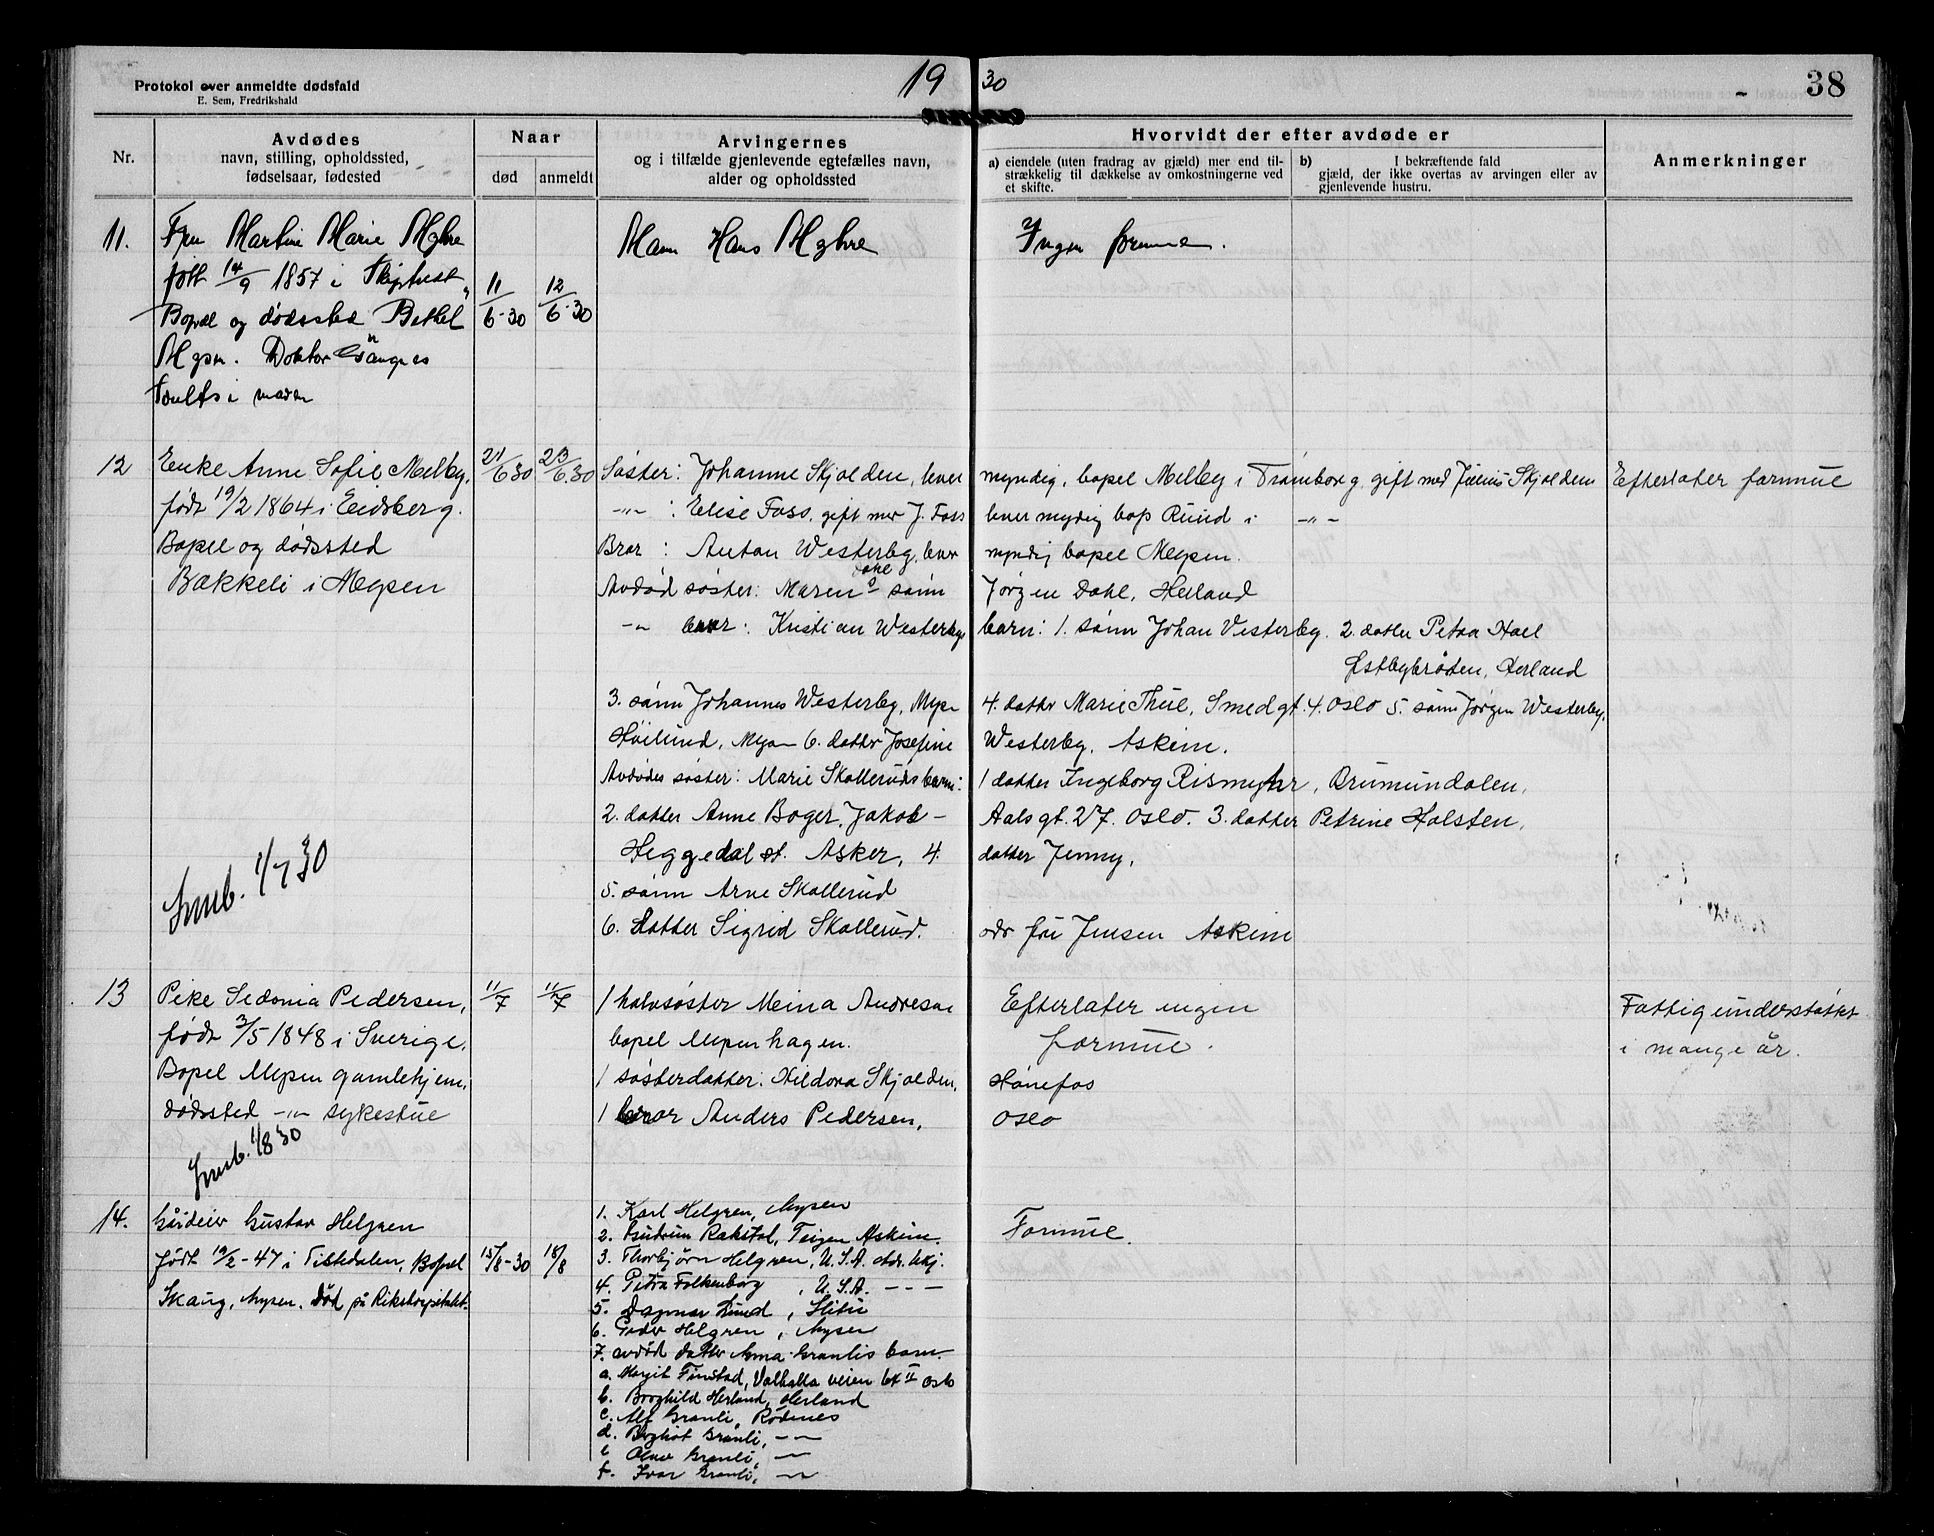 Protokol over anmeldte dødsfald
E. Sem, Fredrikshald
19 30
38
Nr.
Avdødes
navn, stilling, opholdssted,
fødselsaar, fødested
Naar
død
anmeldt
Arvingernes
og i tilfælde gjenlevende egtefælles navn,
alder og opholdssted
Hvorvidt der efter avdøde er
a) eiendele (uten fradrag av gjæld) mer end til-
strækkelig til dækkelse av omkostningerne ved
et skifte.
b) I bekræftende fald
gjæld, der ikke overtas av arvingen eller av
gjenlevende hustru.
Anmerkninger
11.
Fru Martine Marie Myhre
født 14/9 1857 i
Bopæl og dødssted Bethel
Mysen. Doktor
i maven
11/6-30
12/6-30
Mann Hans Myhre
Ingen formue.
12
Enke Anne Sofie Melby,
født 19/2 1864 i Eidsberg.
Bopel og dødssted
Bækkeli i Mysen
21/6 30
23/6.30
Søster: Johanne Skjolden, lever myndig, bopel Melby i Trømborg, gift med Julius Skjolden
-"- : Elise Foss, gift mer J. Foss lever mydig bop Ruud i -"-
Bror : Anton Westerby, lever myndig bopel Mysen.
Avdød søster: Maren Dahl s sønn Jørgen Dahl, Herland
-"- bror: Kristian Westerby barn: 1. sønn Johan Vesterby. 2. datter Petra Hoel
Østbybråten, Herland
3. sønn Johannes Westerby, Mysen 4. datter Marie Thue, Smedgt. 4. Oslo 5. sønn Jørgen Westerby,
Høilund, Mysen 6. datter Josefine Westerby, Askim.
Avdødes søster: Marie Skolleruds barn: 1 datter Ingeborg Rismyhr, Brumundalen,
2. datter Anne Boger, Jakob- Aalsgt. 27. Oslo. 3. datter Petrine Holsten,
Heggedal st. Asker, 4. datter Jenny,
5. sønn Arne Skollerud
6. datter Sigrid Skollerud. adr fru Jensen Askim
Efterlater formue
Innb. 1/7 30
13
Pike Sedonia Pedersen,
født 3/5 1848 i Sverige.
Bopel Mysen gamlehjem,
dødssted -"- sykestue
11/7
11/7
1 halvsøster Meina Andresen
bopel Mysen hagen.
1 søsterdatter: Hildora Skjolden, Hønefos
1 bror Anders Pedersen, Oslo
Efterlater ingen
formue.
Fattigunderstøttet
i mange år.
Innb. 1/8 30
14.
Gårdeier Gustav Helgren
født 19/2-47 i Tistedalen, Bopæl
Skaug, Mysen. Død på Rikshospitalet.
15/8-30
18/8
1. Karl Helgren, Mysen
2. Gudrun Rakstal, Teigen Askim.
3. Thorbjørn Helgren, U.S.A. Adr. ukj.
4. Petra Folkenborg, U.S.A. - - -
5. Dagmar Lund, Slitu
6. Peder Helgren, Mysen
7. avdød datter Anna Granlis barn.
a. Margit Finstad, Valhalla veien 64 II Oslo
b. Borghild Herland, Herland
c. Alf Granli, Rødenes
d. Bergliot Granli, -"-
e Olav Granli, -"-
f. Ivar Granli, -"-
Formue.